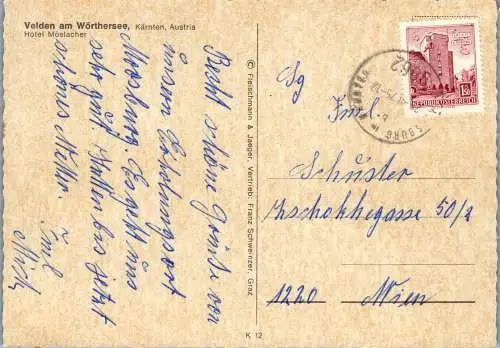 Velden am Wörthersee, Kärnten, Austria
Hotel Möslacher
Recht schöne Grüße von
unserem Erholungsort
Moosburg. Es geht uns
sehr gut. Hatten bis jetzt
schönes Wetter.
© Fleischmann & Jaeger, Vertrieb: Franz Schweinzer, Graz
K 12
REPUBLIK ÖSTERREICH
1.50
9062
Fam.
Schuster
Zschokkegasse 50/2
1220 Wien